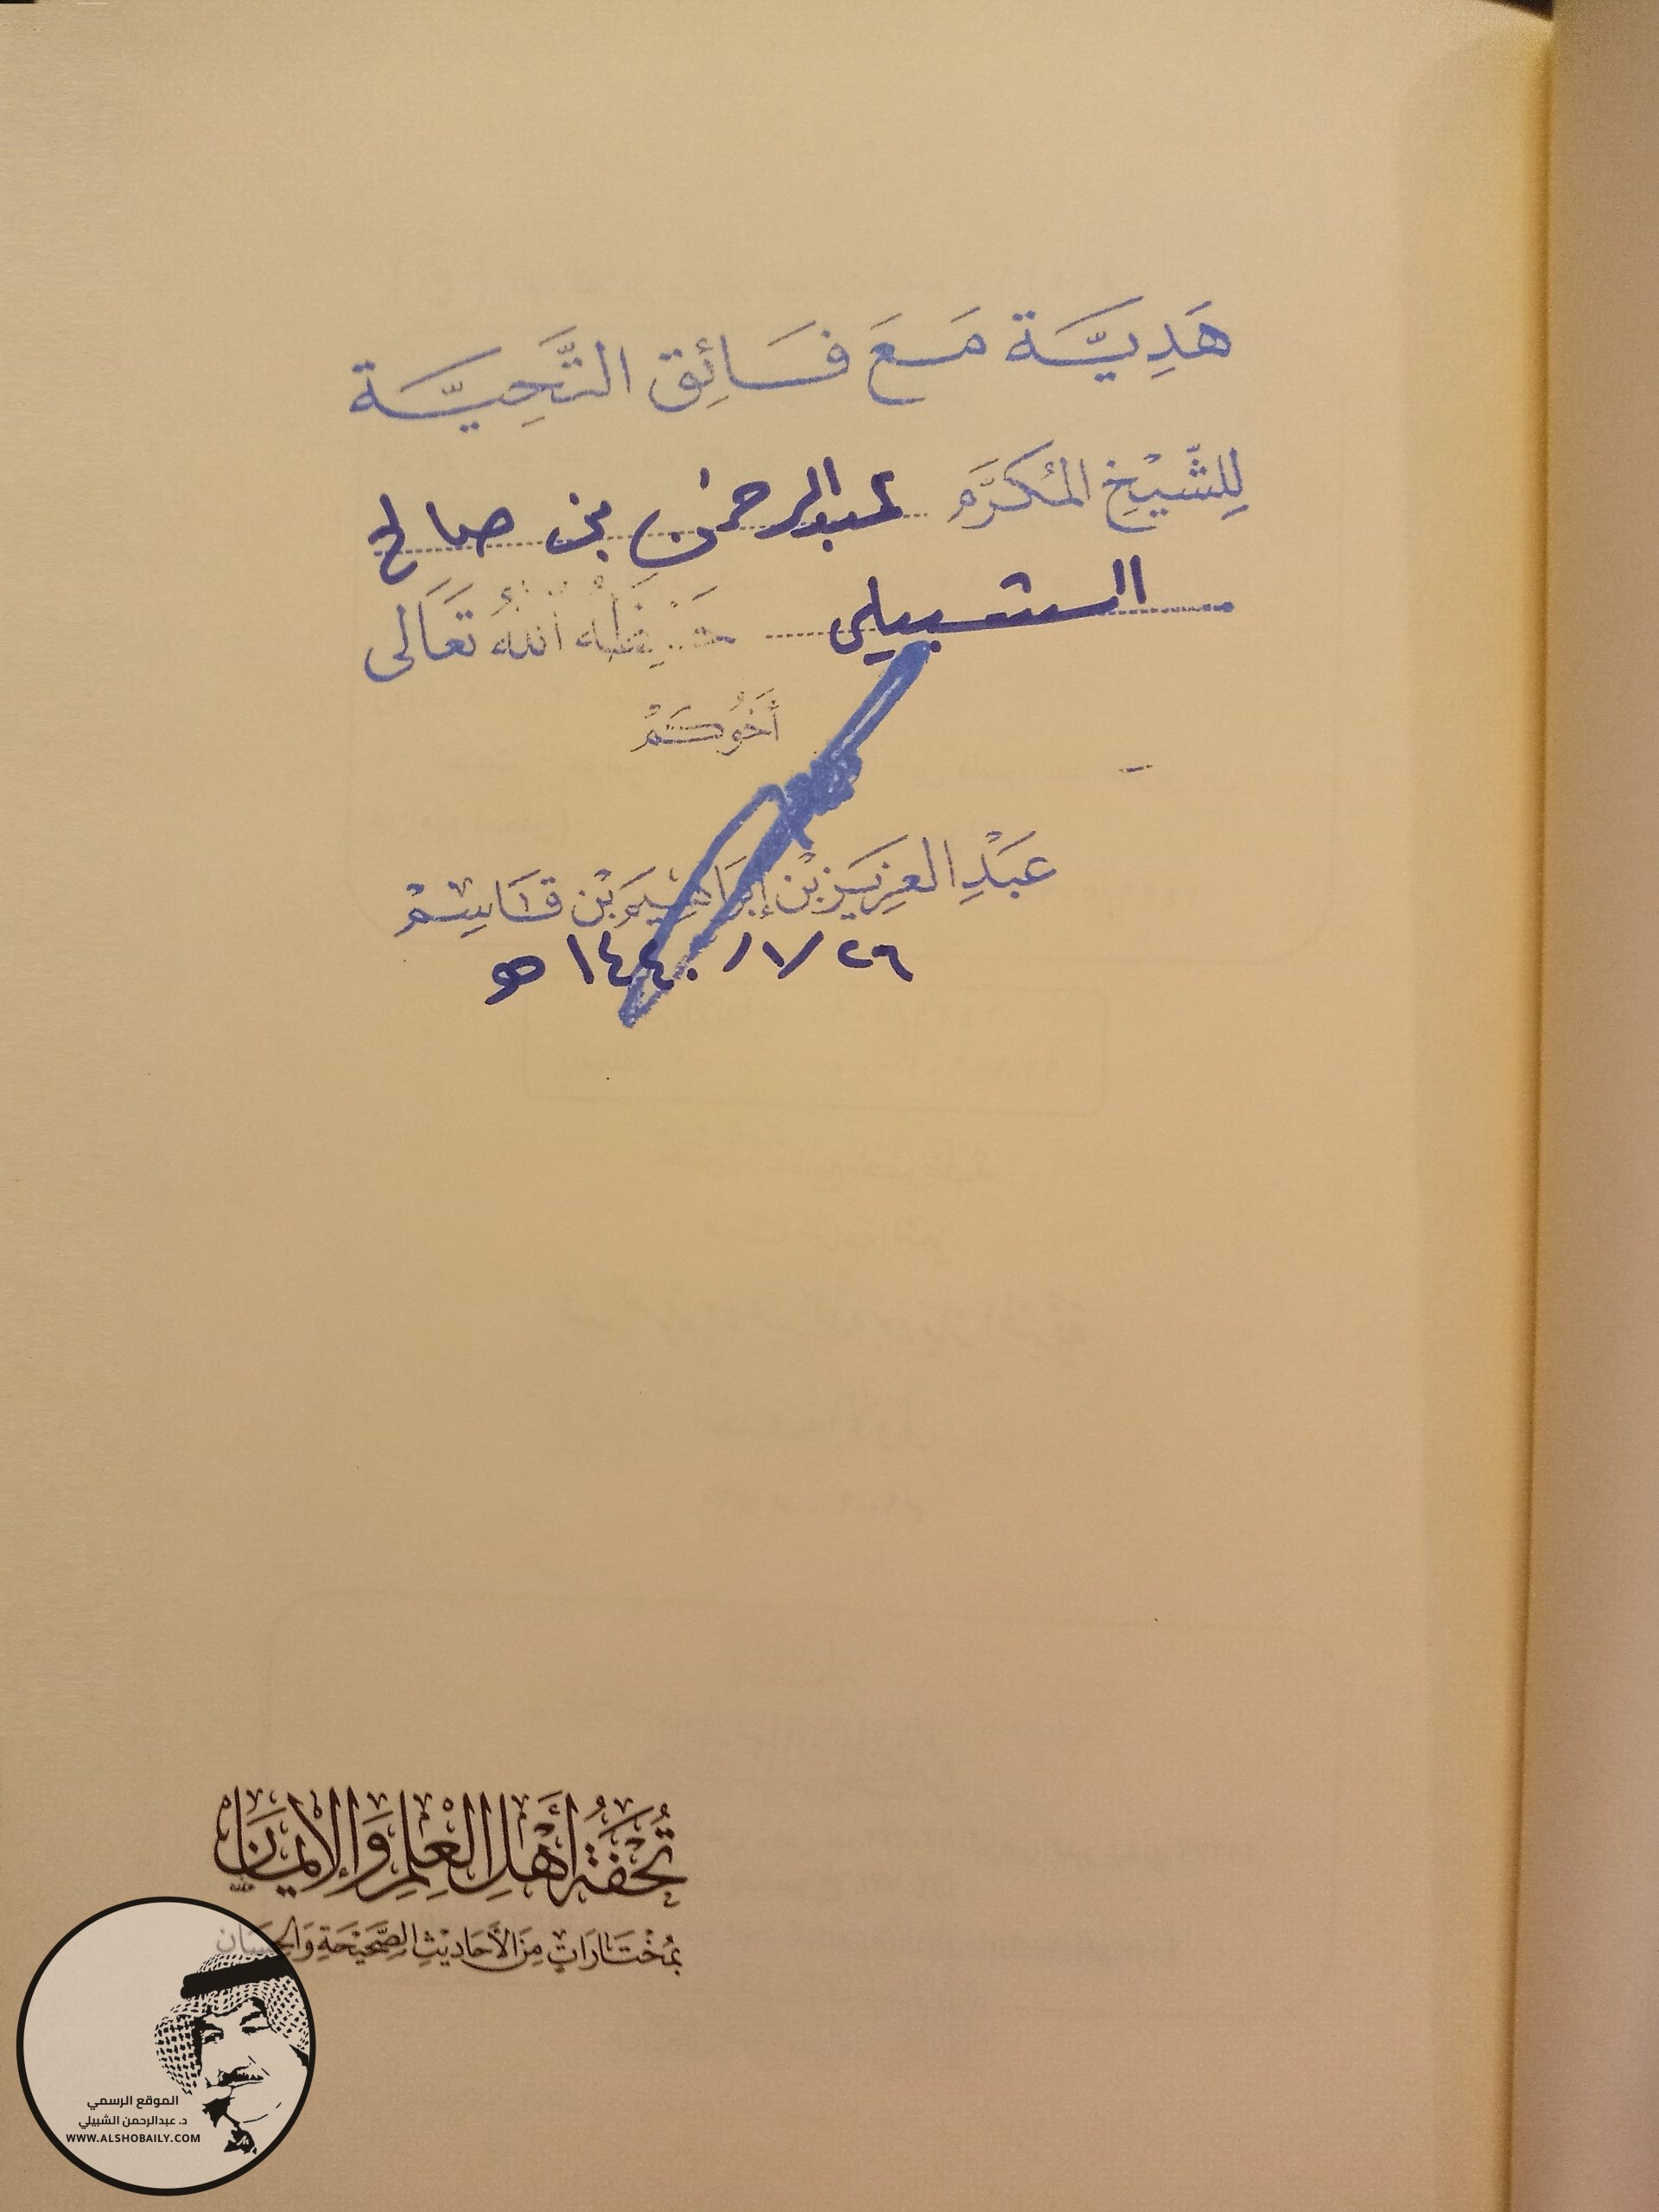 هَدِيَّة مَعَ فَائِق التَّحِيَّة
لِلشَّيْخِ المُكَرَّم عبدالرحمن بن صالح
الشبيلي حَفِظَهُ اللهُ تَعَالى
أَخُوكُمْ
عَبْدِ العَزِيز بْن إِبْرَاهِيم بْن قَاسِمْ
٢٦/١/١٤٤٠ هـ
تُحْفَةُ أَهْلِ العِلْمِ وَالإِيمَانِ
بِمُخْتَارَاتٍ مِنَ الأَحَادِيْثِ الصَّحِيْحَةِ وَالحِسَانِ
الموقع الرسمي
د. عبدالرحمن الشبيلي
WWW.ALSHOBAILY.COM